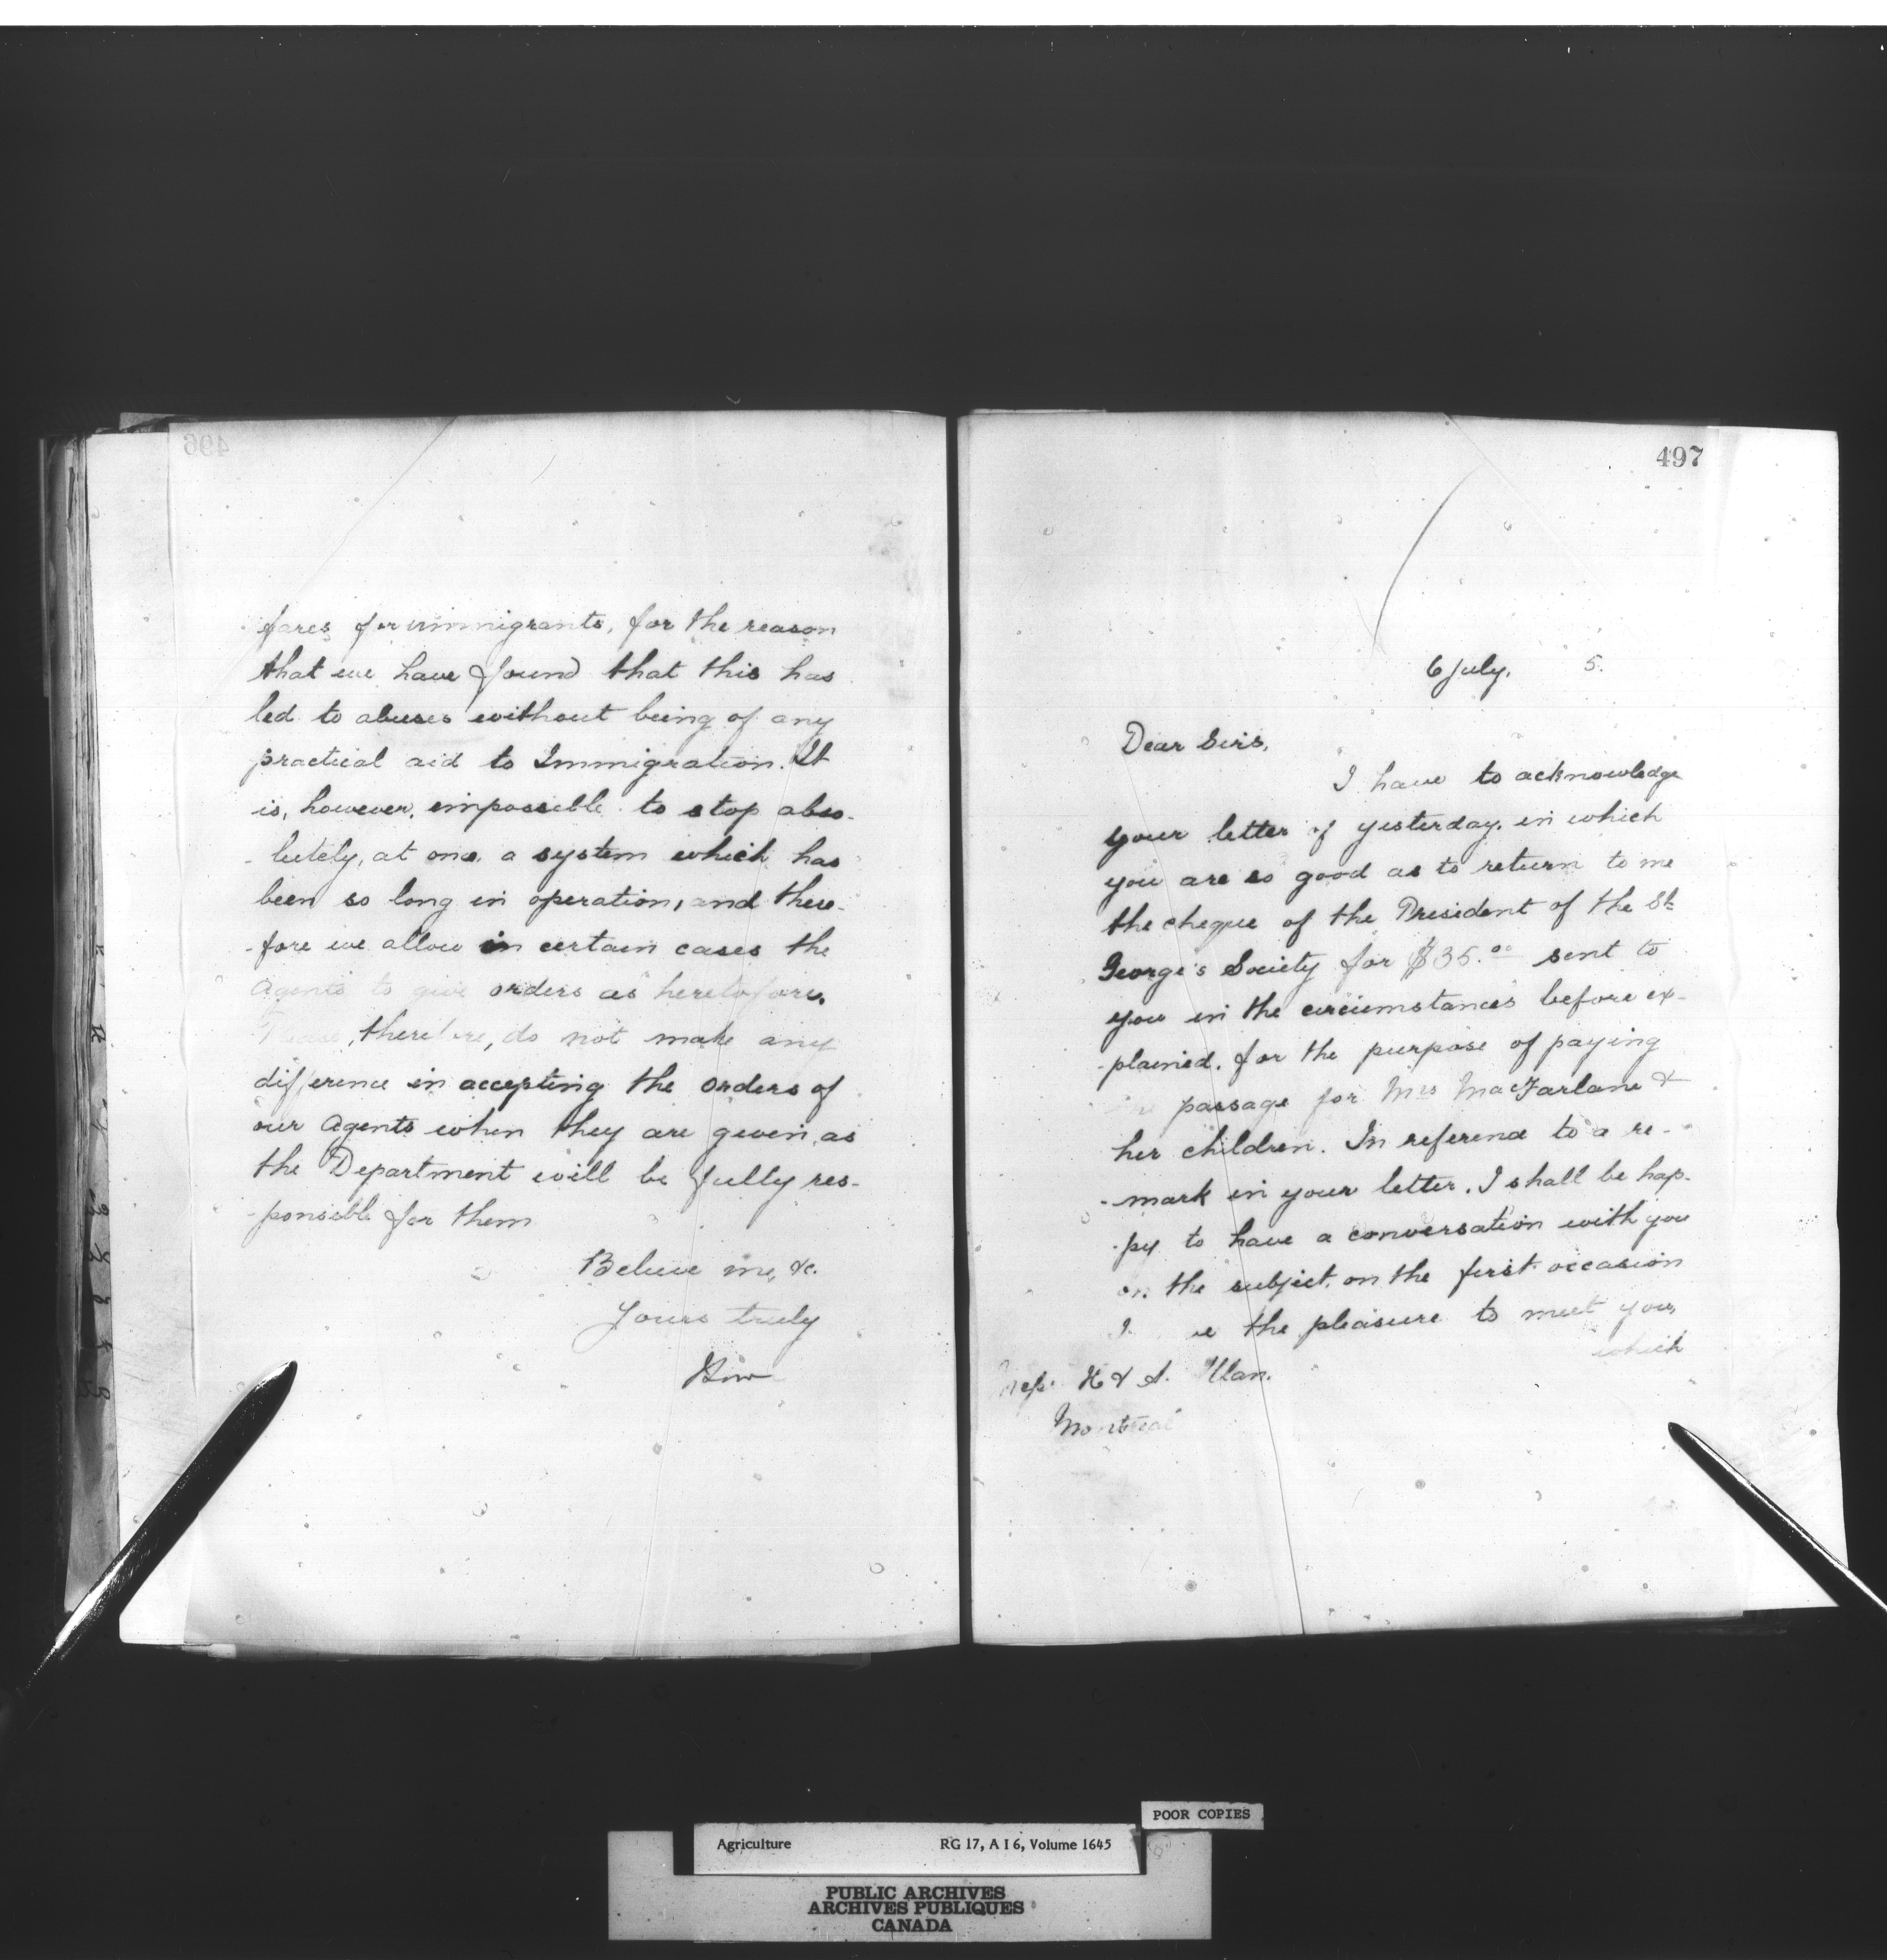 496
fares for immigrants, for the reason
that we have found that this has
led to abuses without being of any
practical aid to Immigration. It
is, however, impossible to stop abso-
-lutely, at once, a system which has
been so long in operation, and there-
-fore we allow in certain cases the
Agents to give orders as heretofore.
Please, therefore, do not make any
difference in accepting the orders of
our Agents when they are given, as
the Department will be fully res-
-ponsible for them
Believe me, &c.
Yours truly
497
6 July, 5.
Dear Sirs,
I have to acknowledge
your letter of yesterday, in which
you are so good as to return to me
the cheque of the President of the St
George's Society for $35.00 sent to
you in the circumstances before ex-
-plained, for the purpose of paying
the passage for Mrs MacFarlane &
her children. In reference to a re-
-mark in your letter, I shall be hap-
-py to have a conversation with you
on the subject, on the first occasion
I the pleasure to meet you,
which
Mess. H & A. Allan.
Montreal
POOR COPIES
Agriculture RG 17, A I 6, Volume 1645
PUBLIC ARCHIVES
ARCHIVES PUBLIQUES
CANADA